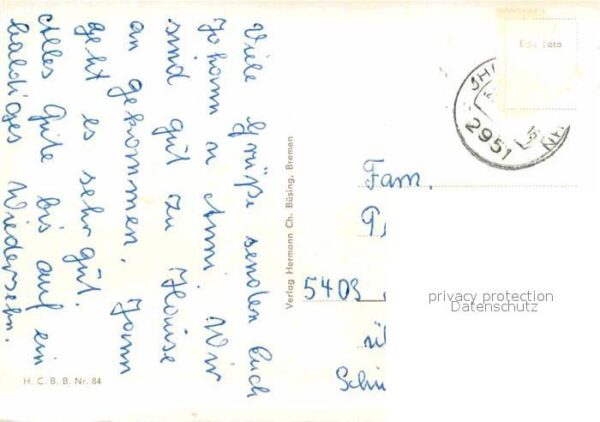 Viele Grüße senden Euch
Johann u Anni. Wir
sind gut zu Hause
an gekommen. Jonn
geht es sehr gut.
Alles Gute bis auf ein
baldiges Wiedersehn.
H. C. B. B. Nr. 84
Verlag Hermann Ch. Büsing, Bremen
2951
Fam.
5403
privacy protection
Datenschutz